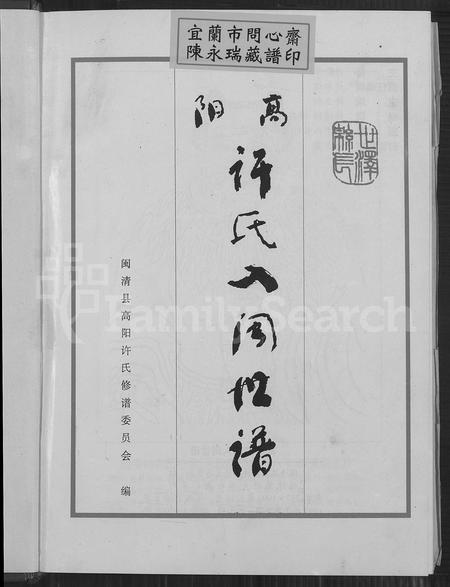 宜蘭市問心齋
陳永瑞藏譜印
高阳
许氏入闽世谱
世澤
緜長
闽清县高阳许氏修谱委员会 编
FamilySearch